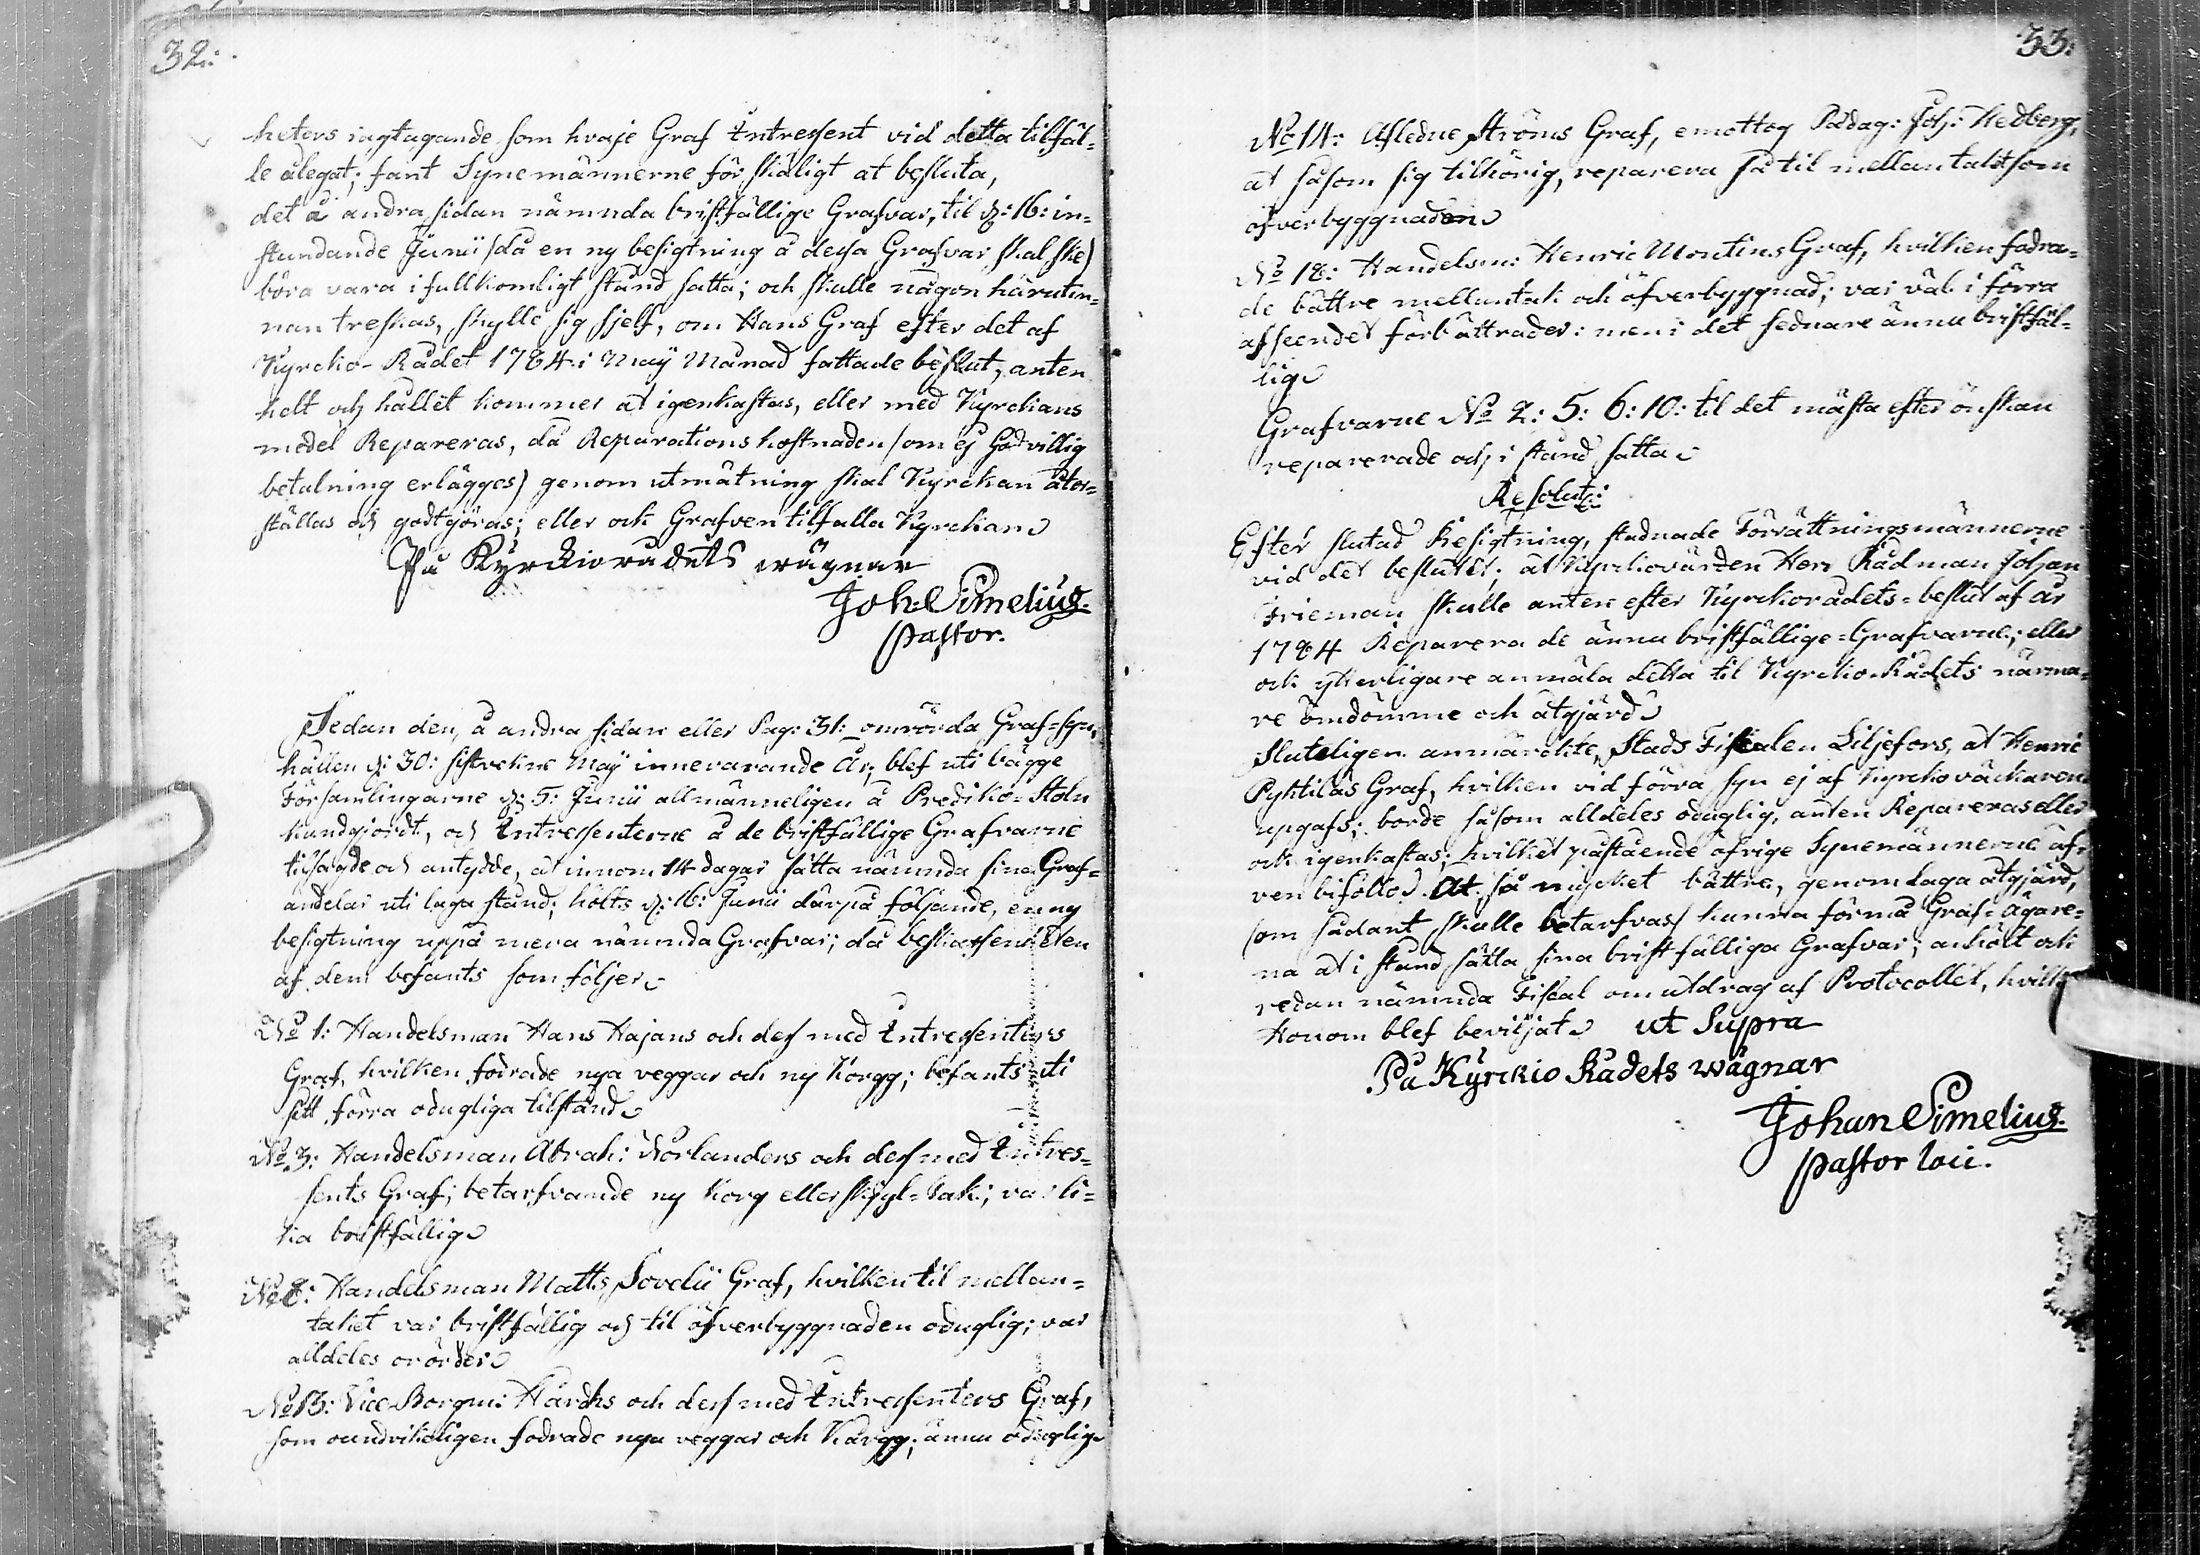 32:
heters iagtagande som hvarje Graf Intressent vid detta tilfäl-
le ålegat; fant Synemännerne för skäligt at besluta,
det å andra sidan nämnda bristfällige Grafvar, til d: 16: in-
stundande Junii (då en ny besigtning å dessa Grafvar skal ske)
böra vara i fullkomligt stånd satta; och skulle någon härutin-
nan treskas, skylle sig sjelf, om Hans Graf efter det af
Kyrcko-Rådet 1784 i Maÿ Månad fattade beslut, anten
helt och hållet kommer at igenkastas, eller med Kyrckans
medel Repareras, då Reparations kostnaden (om ej Godvillig
betalning erlägges) genom utmätning skal Kyrckan åter-
ställas och godtgöras; eller ock Grafven tilfalla Kyrckan
På Kÿrckiorådets wägnar
Joh: Simelius.
pastor.
Sedan den, å andra sidan eller Pag: 31: omrörda Graf-syn,
hållen d: 30: sistvekne Maÿ innevarande År, blef uti bägge
Församlingarne d: 5: Junii allmänneligen å Prediko-Stoln
kundgjordt, och Intressenterne å de bristfällige Grafvarne
tilsagde och antydde, at innom 14 dagar sätta nämnda sina Graf-
andelar uti laga stånd; hölts d: 16: Junii därpå följande, en ny
besigtning uppå mera nämnda Grafvar; då beskaffenheten
af dem befants som följer
No 1: Handelsman Hans Hajans och dess med Intressenters
Graf, hvilken fodrade nya veggar och ny Korgg; befants uti
sitt förra odugliga tilstånd
No 3: Handelsman Abrah: Norlanders och dess med Intres-
sents Graf; betarfvande ny Korg eller skyl-tak; var li-
ka bristfällig
No 8: Handelsman Matts Sovelii Graf, hvilken til mellan-
taket var bristfällig och til öfverbyggnaden oduglig; var
alldeles orörder
No 13: Vice Borgm: Hårdhs och dess med Intressenters Graf,
som oundvikeligen fodrade nya veggar och Kårgg; ännu oduglig
33:
No 14: Afledne Ströms Graf, emottog Pädag: Joh: Hedberg,
at såsom sig tilhörig, reparera så til mellantaket som
öfverbyggnaden
No 18: Handelsm: Henric Montins Graf, hvilken fodra-
de bättre mellantak och öfverbyggnad; var väl i förra
afseendet förbättrader: men i det sednare ännu bristfäl-
lig
Grafvarne No 2: 5: 6: 10: til det mästa efter önskan
reparerade och i stånd satta
Resolut:
Efter slutad Besigtning, stadnade Förrättningsmännerne
vid det beslutet; at Kyrckovärden Herr Rådman Johan
Frieman skulle anten efter Kyrckorådets-beslut af år
1784 Reparera de ännu bristfällige-Grafvarne; eller
ock ytterligare anmäla detta til Kyrcko-Rådets närma-
re omdömme och åtgjärd
Sluteligen anmärckte, Stads Fiscalen Liljefors, at Henric
Pyhtiläs Graf, hvilken vid förra syn ej af Kyrckoväckaren
upgafs; borde såsom alldeles oduglig, anten Repareras eller
ock igenkastas; hvilket påstående öfrige Synemännerne äf-
ven biföllo. At så mycket bättre, genom laga åtgjärd,
(om sådant skulle betarfvas) kunna förmå Graf-Ägare-
na at i stånd sätta sina bristfälliga Grafvar; anhölt ock
redan nämnda Fiscal om utdrag af Protocollet, hvilket
Honom blef beviljat ut Supra
På Kÿrckio Rådets wägnar
Johan Simelius.
pastor loci.